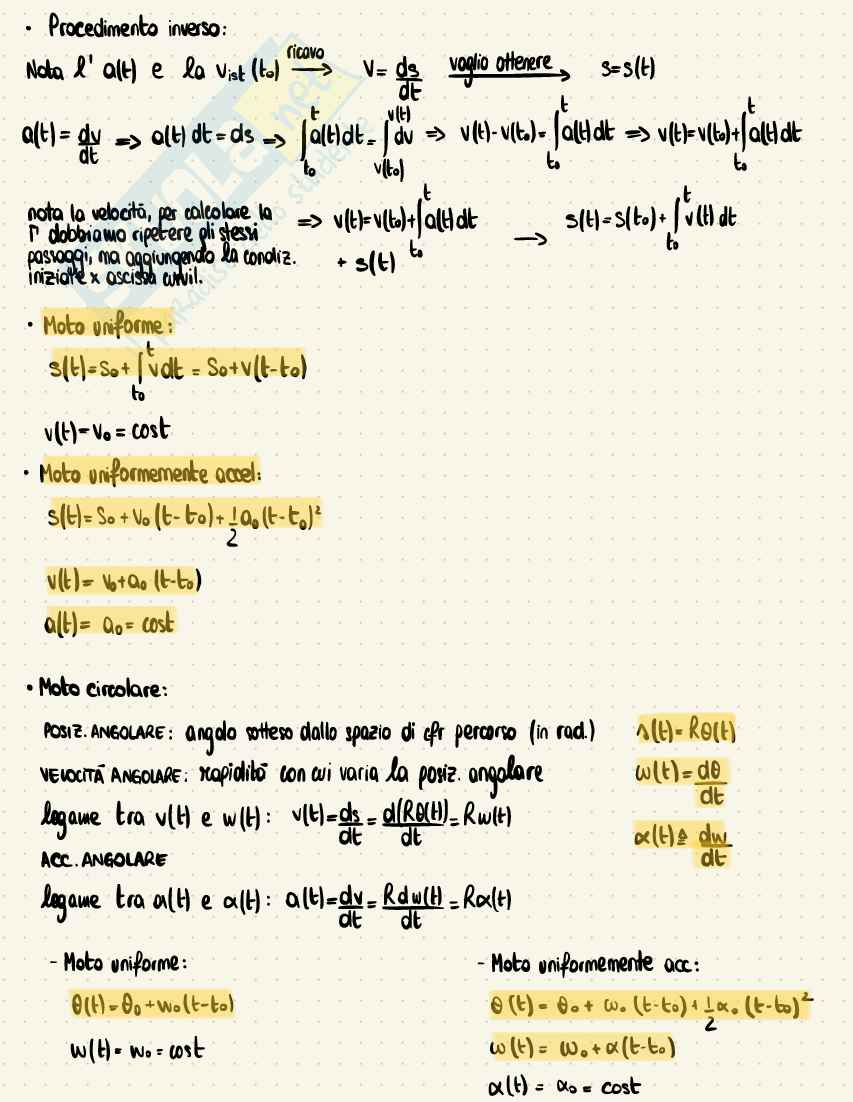 · Procedimento inverso:
Nota l' a(t) e la v_ist (t₀) ricavo → V = ds/dt voglio ottenere → s=s(t)
a(t) = dv/dt ⇒ a(t) dt = ds ⇒ ∫_{t₀}^{t} a(t) dt = ∫_{v(t₀)}^{v(t)} dv ⇒ v(t) - v(t₀) = ∫_{t₀}^{t} a(t) dt ⇒ v(t) = v(t₀) + ∫_{t₀}^{t} a(t) dt
nota la velocità, per calcolare la
r dobbiamo ripetere gli stessi
passaggi, ma aggiungendo la condiz.
iniziale x ascissa curvil.
⇒ v(t) = v(t₀) + ∫_{t₀}^{t} a(t) dt → s(t) = s(t₀) + ∫_{t₀}^{t} v(t) dt
+ s(t)
· Moto uniforme:
s(t) = s₀ + ∫_{t₀}^{t} v dt = s₀ + v(t-t₀)
v(t) = v₀ = cost
· Moto uniformemente accel:
s(t) = s₀ + v₀ (t-t₀) + 1/2 a₀ (t-t₀)²
v(t) = v₀ + a₀ (t-t₀)
a(t) = a₀ = cost
· Moto circolare:
POSIZ. ANGOLARE: angolo sotteso dallo spazio di cfr percorso (in rad.) s(t) = Rθ(t)
VELOCITÀ ANGOLARE: rapidità con cui varia la posiz. angolare ω(t) = dθ/dt
legame tra v(t) e w(t): v(t) = ds/dt = d(Rθ(t))/dt = Rω(t)
α(t) ≜ dw/dt
ACC. ANGOLARE
legame tra a(t) e α(t): a(t) = dv/dt = R dw(t)/dt = Rα(t)
- Moto uniforme:
θ(t) = θ₀ + w₀(t-t₀)
w(t) = w₀ = cost
- Moto uniformemente acc:
θ(t) = θ₀ + ω₀ (t-t₀) + 1/2 α₀ (t-t₀)²
ω(t) = ω₀ + α(t-t₀)
α(t) = α₀ = cost